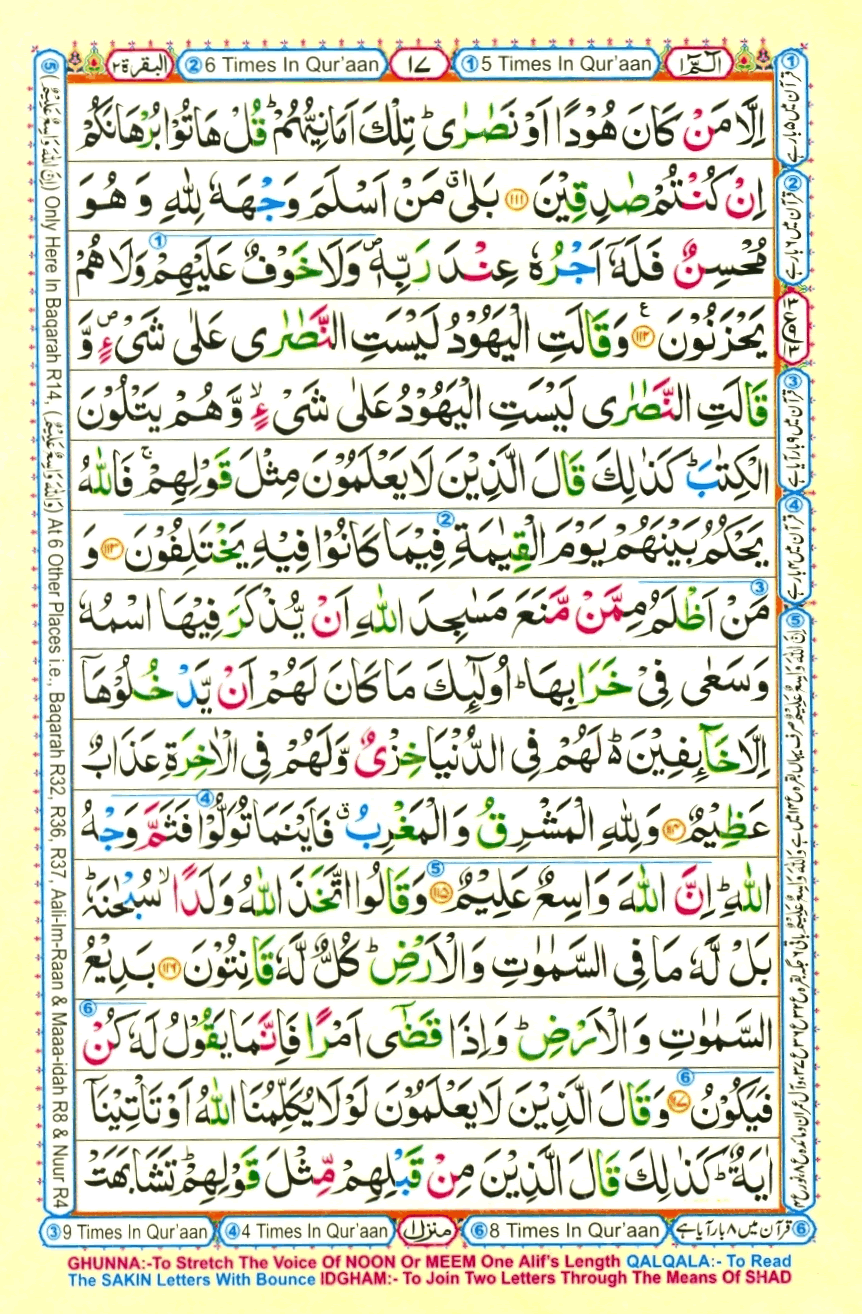 البقرة ٢
② 6 Times In Qur'aan
١٧
① 5 Times In Qur'aan
الٓمّٓ ١
① قرآن میں ۵ بار ہے
② قرآن میں ۶ بار ہے
③ قرآن میں ۹ بار آیا ہے
④ قرآن میں ۴ بار ہے
اِلَّا مَنْ كَانَ هُوْدًا اَوْ نَصٰرٰى ؕ تِلْكَ اَمَانِيُّهُمْ ؕ قُلْ هَاتُوْا بُرْهَانَكُمْ
اِنْ كُنْتُمْ صٰدِقِيْنَ ﴿۱۱۱﴾ بَلٰى ۗ مَنْ اَسْلَمَ وَجْهَهٗ لِلّٰهِ وَ هُوَ
مُحْسِنٌ فَلَهٗۤ اَجْرُهٗ عِنْدَ رَبِّهٖ ۪ وَلَا خَوْفٌ عَلَيْهِمْ وَلَا هُمْ
يَحْزَنُوْنَ ﴿۱۱۲﴾ وَقَالَتِ الْيَهُوْدُ لَيْسَتِ النَّصٰرٰى عَلٰى شَىْءٍ ۪ وَّ
قَالَتِ النَّصٰرٰى لَيْسَتِ الْيَهُوْدُ عَلٰى شَىْءٍ ۙ وَّهُمْ يَتْلُوْنَ
الْكِتٰبَ ؕ كَذٰلِكَ قَالَ الَّذِيْنَ لَا يَعْلَمُوْنَ مِثْلَ قَوْلِهِمْ ۚ فَاللّٰهُ
يَحْكُمُ بَيْنَهُمْ يَوْمَ الْقِيٰمَةِ فِيْمَا كَانُوْا فِيْهِ يَخْتَلِفُوْنَ ﴿۱۱۳﴾ وَ
مَنْ اَظْلَمُ مِمَّنْ مَّنَعَ مَسٰجِدَ اللّٰهِ اَنْ يُّذْكَرَ فِيْهَا اسْمُهٗ
وَسَعٰى فِىْ خَرَابِهَا ؕ اُولٰٓئِكَ مَا كَانَ لَهُمْ اَنْ يَّدْخُلُوْهَاۤ
اِلَّا خَآئِفِيْنَ ؕ لَهُمْ فِى الدُّنْيَا خِزْىٌ وَّلَهُمْ فِى الْاٰخِرَةِ عَذَابٌ
عَظِيْمٌ ﴿۱۱۴﴾ وَلِلّٰهِ الْمَشْرِقُ وَالْمَغْرِبُ ۗ فَاَيْنَمَا تُوَلُّوْا فَثَمَّ وَجْهُ
اللّٰهِ ؕ اِنَّ اللّٰهَ وَاسِعٌ عَلِيْمٌ ﴿۱۱۵﴾ وَقَالُوا اتَّخَذَ اللّٰهُ وَلَدًا ۙ سُبْحٰنَهٗ ؕ
بَلْ لَّهٗ مَا فِى السَّمٰوٰتِ وَالْاَرْضِ ؕ كُلٌّ لَّهٗ قَانِتُوْنَ ﴿۱۱۶﴾ بَدِيْعُ
السَّمٰوٰتِ وَالْاَرْضِ ؕ وَاِذَا قَضٰٓى اَمْرًا فَاِنَّمَا يَقُوْلُ لَهٗ كُنْ
فَيَكُوْنُ ﴿۱۱۷﴾ وَقَالَ الَّذِيْنَ لَا يَعْلَمُوْنَ لَوْلَا يُكَلِّمُنَا اللّٰهُ اَوْ تَاْتِيْنَاۤ
اٰيَةٌ ؕ كَذٰلِكَ قَالَ الَّذِيْنَ مِنْ قَبْلِهِمْ مِّثْلَ قَوْلِهِمْ ؕ تَشَابَهَتْ
⑤ (اِنَّ اللّٰهَ وَاسِعٌ عَلِيْمٌ) Only Here In Baqarah R14, (وَاللّٰهُ وَاسِعٌ عَلِيْمٌ) At 6 Other Places i.e., Baqarah R32, R36, R37, Aali-Im-Raan & Maaa-idah R8 & Nuur R4
③ 9 Times In Qur'aan
④ 4 Times In Qur'aan
منزل ١
⑥ 8 Times In Qur'aan
⑥ قرآن میں ۸ بار آیا ہے
GHUNNA:-To Stretch The Voice Of NOON Or MEEM One Alif's Length QALQALA:- To Read
The SAKIN Letters With Bounce IDGHAM:- To Join Two Letters Through The Means Of SHAD